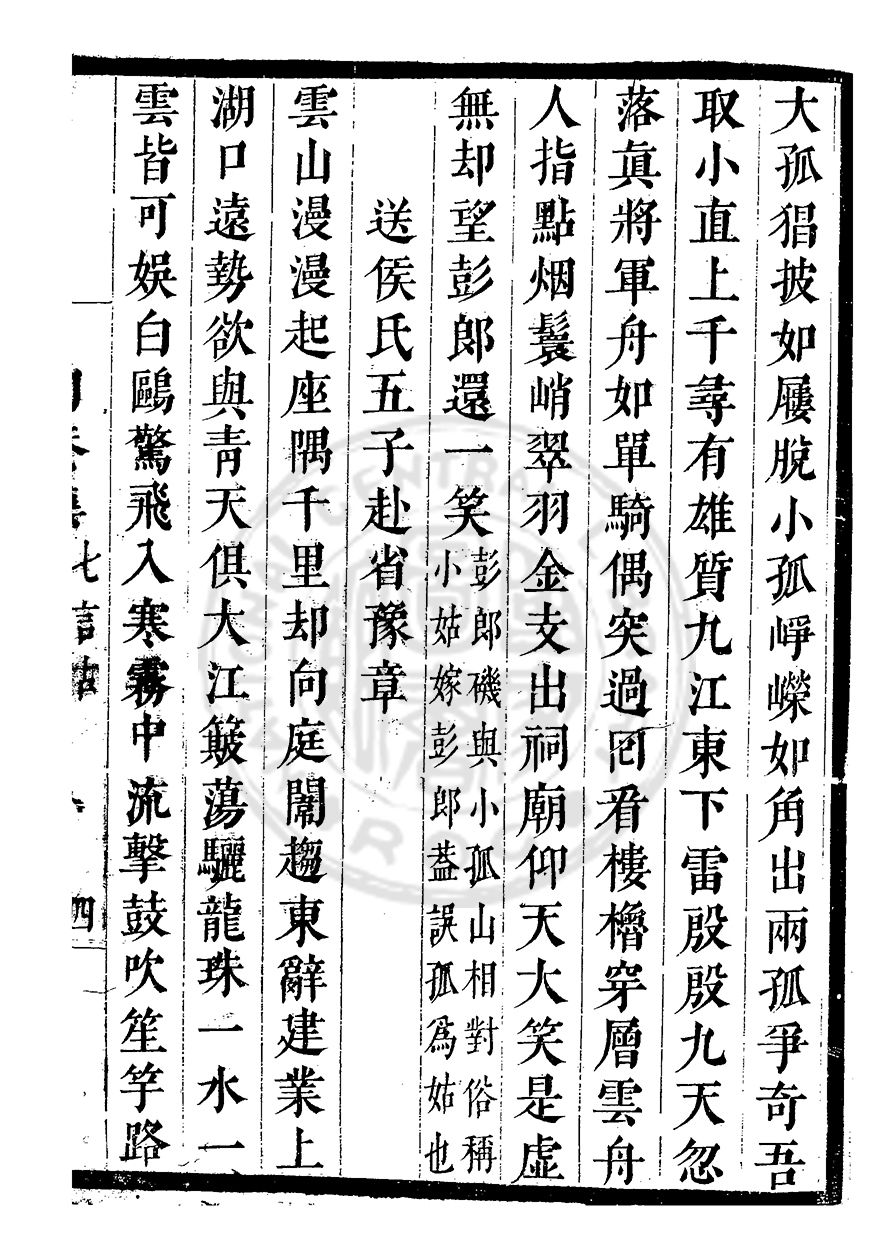 大孤猖披如屨脫小孤崢嶸如角出兩孤爭奇吾
取小直上千尋有雄質九江東下雷殷殷九天忽
落眞將軍舟如單騎偶突過囘看樓櫓穿層雲舟
人指點烟鬟峭翠羽金支出祠廟仰天大笑是虛
無却望彭郞還一笑彭郞磯與小孤山相對俗稱
小姑嫁彭郞葢誤孤爲姑也
送侯氏五子赴省豫章
雲山漫漫起座隅千里却向庭闈趨東辭建業上
湖口遠勢欲與靑天俱大江簸蕩驪龍珠一水一
雲皆可娛白鷗驚飛入寒霧中流擊鼓吹笙竽路
七言古
四